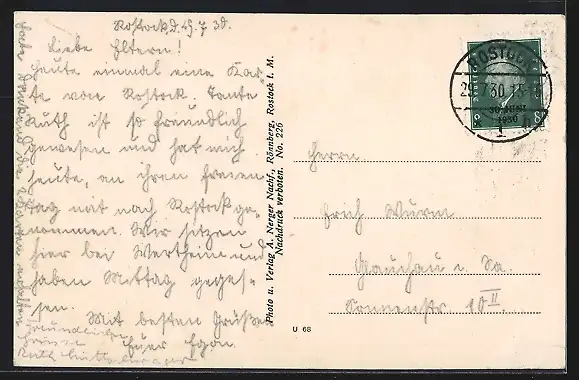 Rostock d. 29.7.30.
Liebe Eltern!
Heute einmal eine Kar-
te von Rostock. Tante
Ruth ist so freundlich
gewesen und hat mich
heute, an ihren freien
Tag mit nach Rostock ge-
nommen. Wir sitzen
hier bei Wertheim und
haben Mittag geges-
sen.
Mit besten Grüßen
Euer Egon.
Freundliche
Grüsse
Ruth
Photo u. Verlag A. Nerger Nachf., Rönnberg, Rostock i. M.
Nachdruck verboten. No. 226
U 68
ROSTOCK
29.7.30.15
30. JUNI
1930
8
8
Herrn
Erich Wurm
Glauchau i. Sa.
Sonnenstr 10 II.